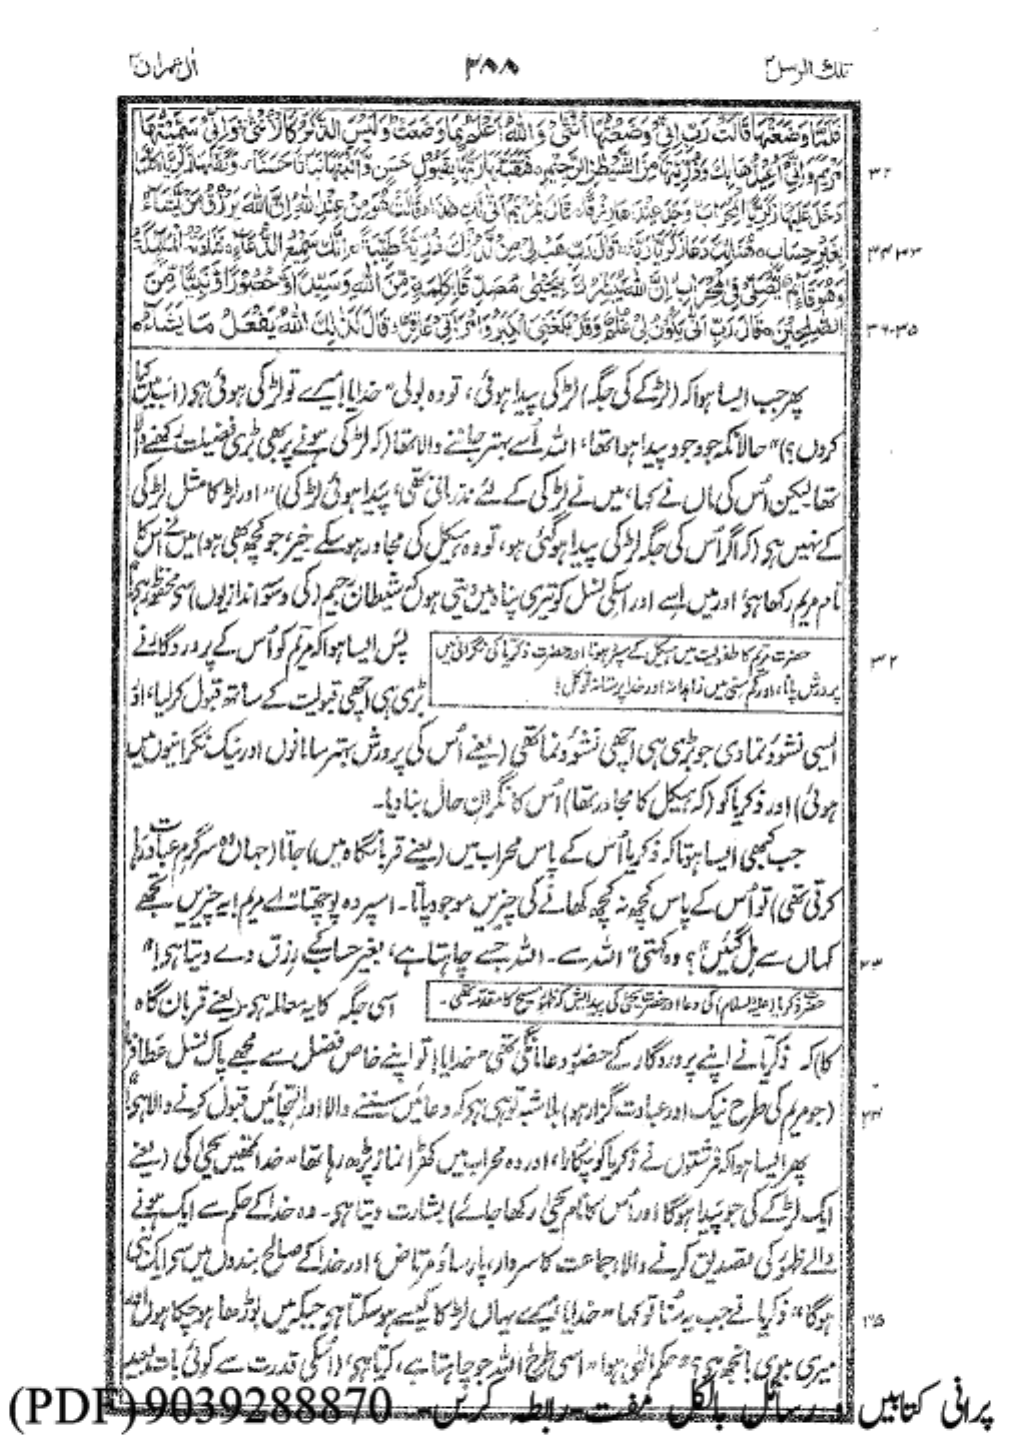 تلك الرسل ۳ ۳۸۸ اٰل عمران ۳
فَلَمَّا وَضَعَتْهَا قَالَتْ رَبِّ اِنِّیْ وَضَعْتُهَاۤ اُنْثٰی وَاللّٰهُ اَعْلَمُ بِمَا وَضَعَتْ وَلَیْسَ الذَّكَرُ كَالْاُنْثٰی وَاِنِّیْ سَمَّیْتُهَا
مَرْیَمَ وَاِنِّیْۤ اُعِیْذُهَا بِكَ وَذُرِّیَّتَهَا مِنَ الشَّیْطٰنِ الرَّجِیْمِ فَتَقَبَّلَهَا رَبُّهَا بِقَبُوْلٍ حَسَنٍ وَّاَنْۢبَتَهَا نَبَاتًا حَسَنًا وَّكَفَّلَهَا زَكَرِیَّا كُلَّمَا
دَخَلَ عَلَیْهَا زَكَرِیَّا الْمِحْرَابَ وَجَدَ عِنْدَهَا رِزْقًا قَالَ یٰمَرْیَمُ اَنّٰی لَكِ هٰذَا قَالَتْ هُوَ مِنْ عِنْدِ اللّٰهِ اِنَّ اللّٰهَ یَرْزُقُ مَنْ یَّشَآءُ
بِغَیْرِ حِسَابٍ هُنَالِكَ دَعَا زَكَرِیَّا رَبَّهٗ قَالَ رَبِّ هَبْ لِیْ مِنْ لَّدُنْكَ ذُرِّیَّةً طَیِّبَةً اِنَّكَ سَمِیْعُ الدُّعَآءِ فَنَادَتْهُ الْمَلٰٓئِكَةُ
وَهُوَ قَآئِمٌ یُّصَلِّیْ فِی الْمِحْرَابِ اَنَّ اللّٰهَ یُبَشِّرُكَ بِیَحْیٰی مُصَدِّقًۢا بِكَلِمَةٍ مِّنَ اللّٰهِ وَسَیِّدًا وَّحَصُوْرًا وَّنَبِیًّا مِّنَ
الصّٰلِحِیْنَ قَالَ رَبِّ اَنّٰی یَكُوْنُ لِیْ غُلٰمٌ وَّقَدْ بَلَغَنِیَ الْكِبَرُ وَامْرَاَتِیْ عَاقِرٌ قَالَ كَذٰلِكَ اللّٰهُ یَفْعَلُ مَا یَشَآءُ
پھر جب ایسا ہوا کہ (لڑکے کی جگہ) لڑکی پیدا ہوئی، تو وہ بولی "خدایا! میرے تو لڑکی ہوئی ہی (اب میں کیا
کروں؟)" حالانکہ جو وجود پیدا ہوا تھا، اللہ اُسے بہتر جاننے والا تھا (کہ لڑکی ہونے پر بھی بڑی فضیلت رکھنے والا
تھا۔ لیکن اُس کی ماں نے کہا، میں نے لڑکی کے لئے نذر مانی تھی، پیدا ہوئی لڑکی) "اور لڑکا مثل لڑکی
کے نہیں ہی (کہ اگر اُس کی جگہ لڑکی پیدا ہوگئی ہو، تو وہ ہیکل کی مجاور ہو سکے خیر، جو کچھ بھی ہو) میں نے اس کا
نام مریم رکھا ہی، اور میں اسے اور اسکی نسل کو تیری پناہ میں دیتی ہوں کہ شیطان رجیم (کی وسوسہ اندازیوں) سی محفوظ رہی"
حضرت مریم کا طفولیت میں ہیکل کے سپرد ہونا اور حضرت ذکریا کی نگرانی میں
پرورش پانا، اور کم سنی میں زاہدانہ اور خدا پرستانہ توکل!
پس ایسا ہوا کہ مریم کو اُس کے پروردگار نے
بڑی ہی اچھی قبولیت کے ساتھ قبول کر لیا، اور ۳۲
ایسی نشوونما دی جو بڑی ہی اچھی نشوونما تھی (یعنے اُس کی پرورش بہتر سامانوں اور نیک نگرانیوں میں
ہوئی) اور ذکریا کو (کہ ہیکل کا مجاور تھا) اُس کا نگران حال بنا دیا۔
جب کبھی ایسا ہوتا کہ ذکریا اُس کے پاس محراب میں (یعنے قربانگاہ میں) جاتا (جہاں وہ سرگرم عبادت رہا
کرتی تھی) تو اُس کے پاس کچھ نہ کچھ کھانے کی چیزیں موجود پاتا۔ اسپر وہ پوچھتا "اے مریم! یہ چیزیں تجھے
کہاں سے مل گئیں"؟ وہ کہتی "اللہ سے۔ اللہ جسے چاہتا ہے، بغیر حساب کے رزق دے دیتا ہی!" ۳۳
حضرت ذکریا (علیہ السلام) کی دعا اور حضرت یحیٰی کی پیدائش کو ظہور مسیح کا مقدمہ تھی۔
اسی جگہ کا یہ معاملہ ہی۔ (یعنے قربان گاہ
کا) کہ ذکریا نے اپنے پروردگار کے حضور دعا مانگی تھی "خدایا! تو اپنے خاص فضل سے مجھے پاک نسل عطا فرما
(جو مریم کی طرح نیک اور عبادت گزار ہو) بلاشبہ تو ہی ہی کہ دعائیں سننے والا اور التجائیں قبول کرنے والا ہی! ۳۴
پھر ایسا ہوا کہ فرشتوں نے ذکریا کو پکارا، اور وہ محراب میں کھڑا نماز پڑھ رہا تھا "خدا تمھیں یحیٰی کی (یعنے
ایک لڑکے کی جو پیدا ہوگا اور اُس کا نام یحیٰی رکھا جائے) بشارت دیتا ہی۔ وہ خدا کے حکم سے ایک ہونے
والے ظہور کی تصدیق کرنے والا، جماعت کا سردار، پارسا و مرتاض، اور خدا کے صالح بندوں میں سے ایک نبی
ہوگا" ذکریا نے جب یہ سُنا تو کہا "خدایا! میرے یہاں لڑکا کیسے ہو سکتا ہی جبکہ میں بوڑھا ہو چکا ہوں اور ۳۵
میری بیوی بانجھ ہی؟" حکم الٰہی ہوا "اسی طرح اللہ جو چاہتا ہے، کرتا ہی، (اسکی قدرت سے کوئی بات بعید
پرانی کتابیں و رسائل بالکل مفت۔ رابطہ کریں۔ 9039288870 (PDF)